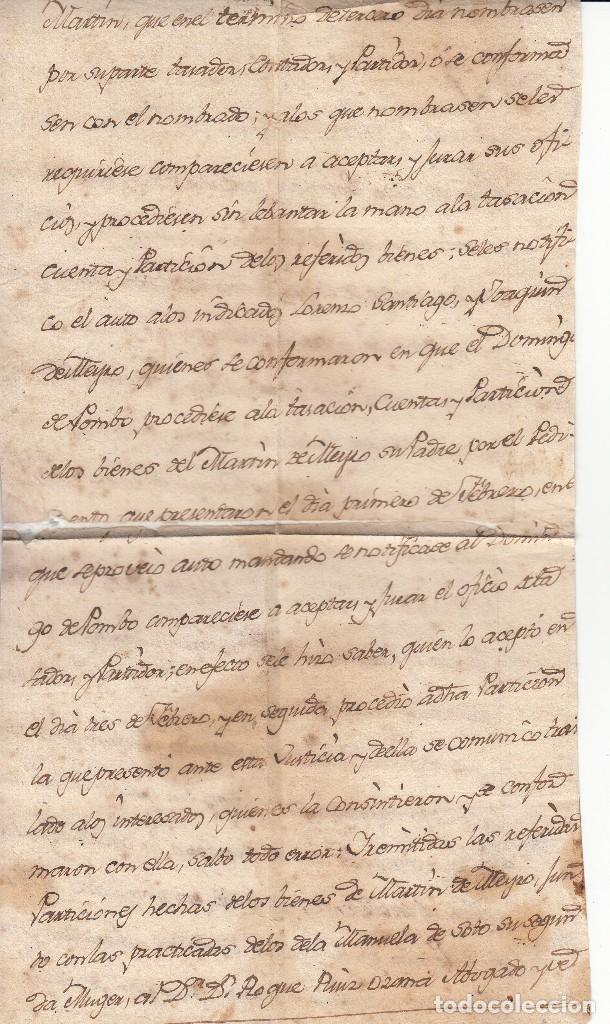 Martin, que en el termino de tercero dia nombrasen
por su parte tasador, Contador, y Partidor, ó se conforma
sen con el nombrado; y alos que nombrasen seles
requiriese compareciesen a aceptar, y Jurar sus ofi
cios, y procediesen sin lebantar la mano ala tasacion
cuenta y Particion delos referidos bienes; seles notifi
co el auto alos indicados Lorenzo Santiago, y Joaquin
de Meyro, quienes se conformaron en que el Domingo
de Pombo procediese ala tasacion, Cuenta, y Particion
delos bienes del Martin de Meyro su Padre por el Pedi
mento que presentaron el dia primero de Febrero, en el
que se proveió auto mandando se notificase al Domin
go de Pombo compareciese a aceptar, y Jurar el oficio de ta
sador, y Partidor; en efecto sele hizo saber, quien lo acepto en
el dia tres de Febrero, y en seguida procedio a dha Particion
la que presentó ante esta Justicia y de ella se comunico tras
lado alos interesados, quienes la Consintieron y se confor
maron con ella, salbo todo error; Y remitidas las referidas
Particiones hechas delos bienes de Martin de Meyro, Jun
to con las practicadas delos dela Manuela de Soto su segun
da Muger, al Dn. Dn. Roque Ruiz Abogado y
todocoleccion